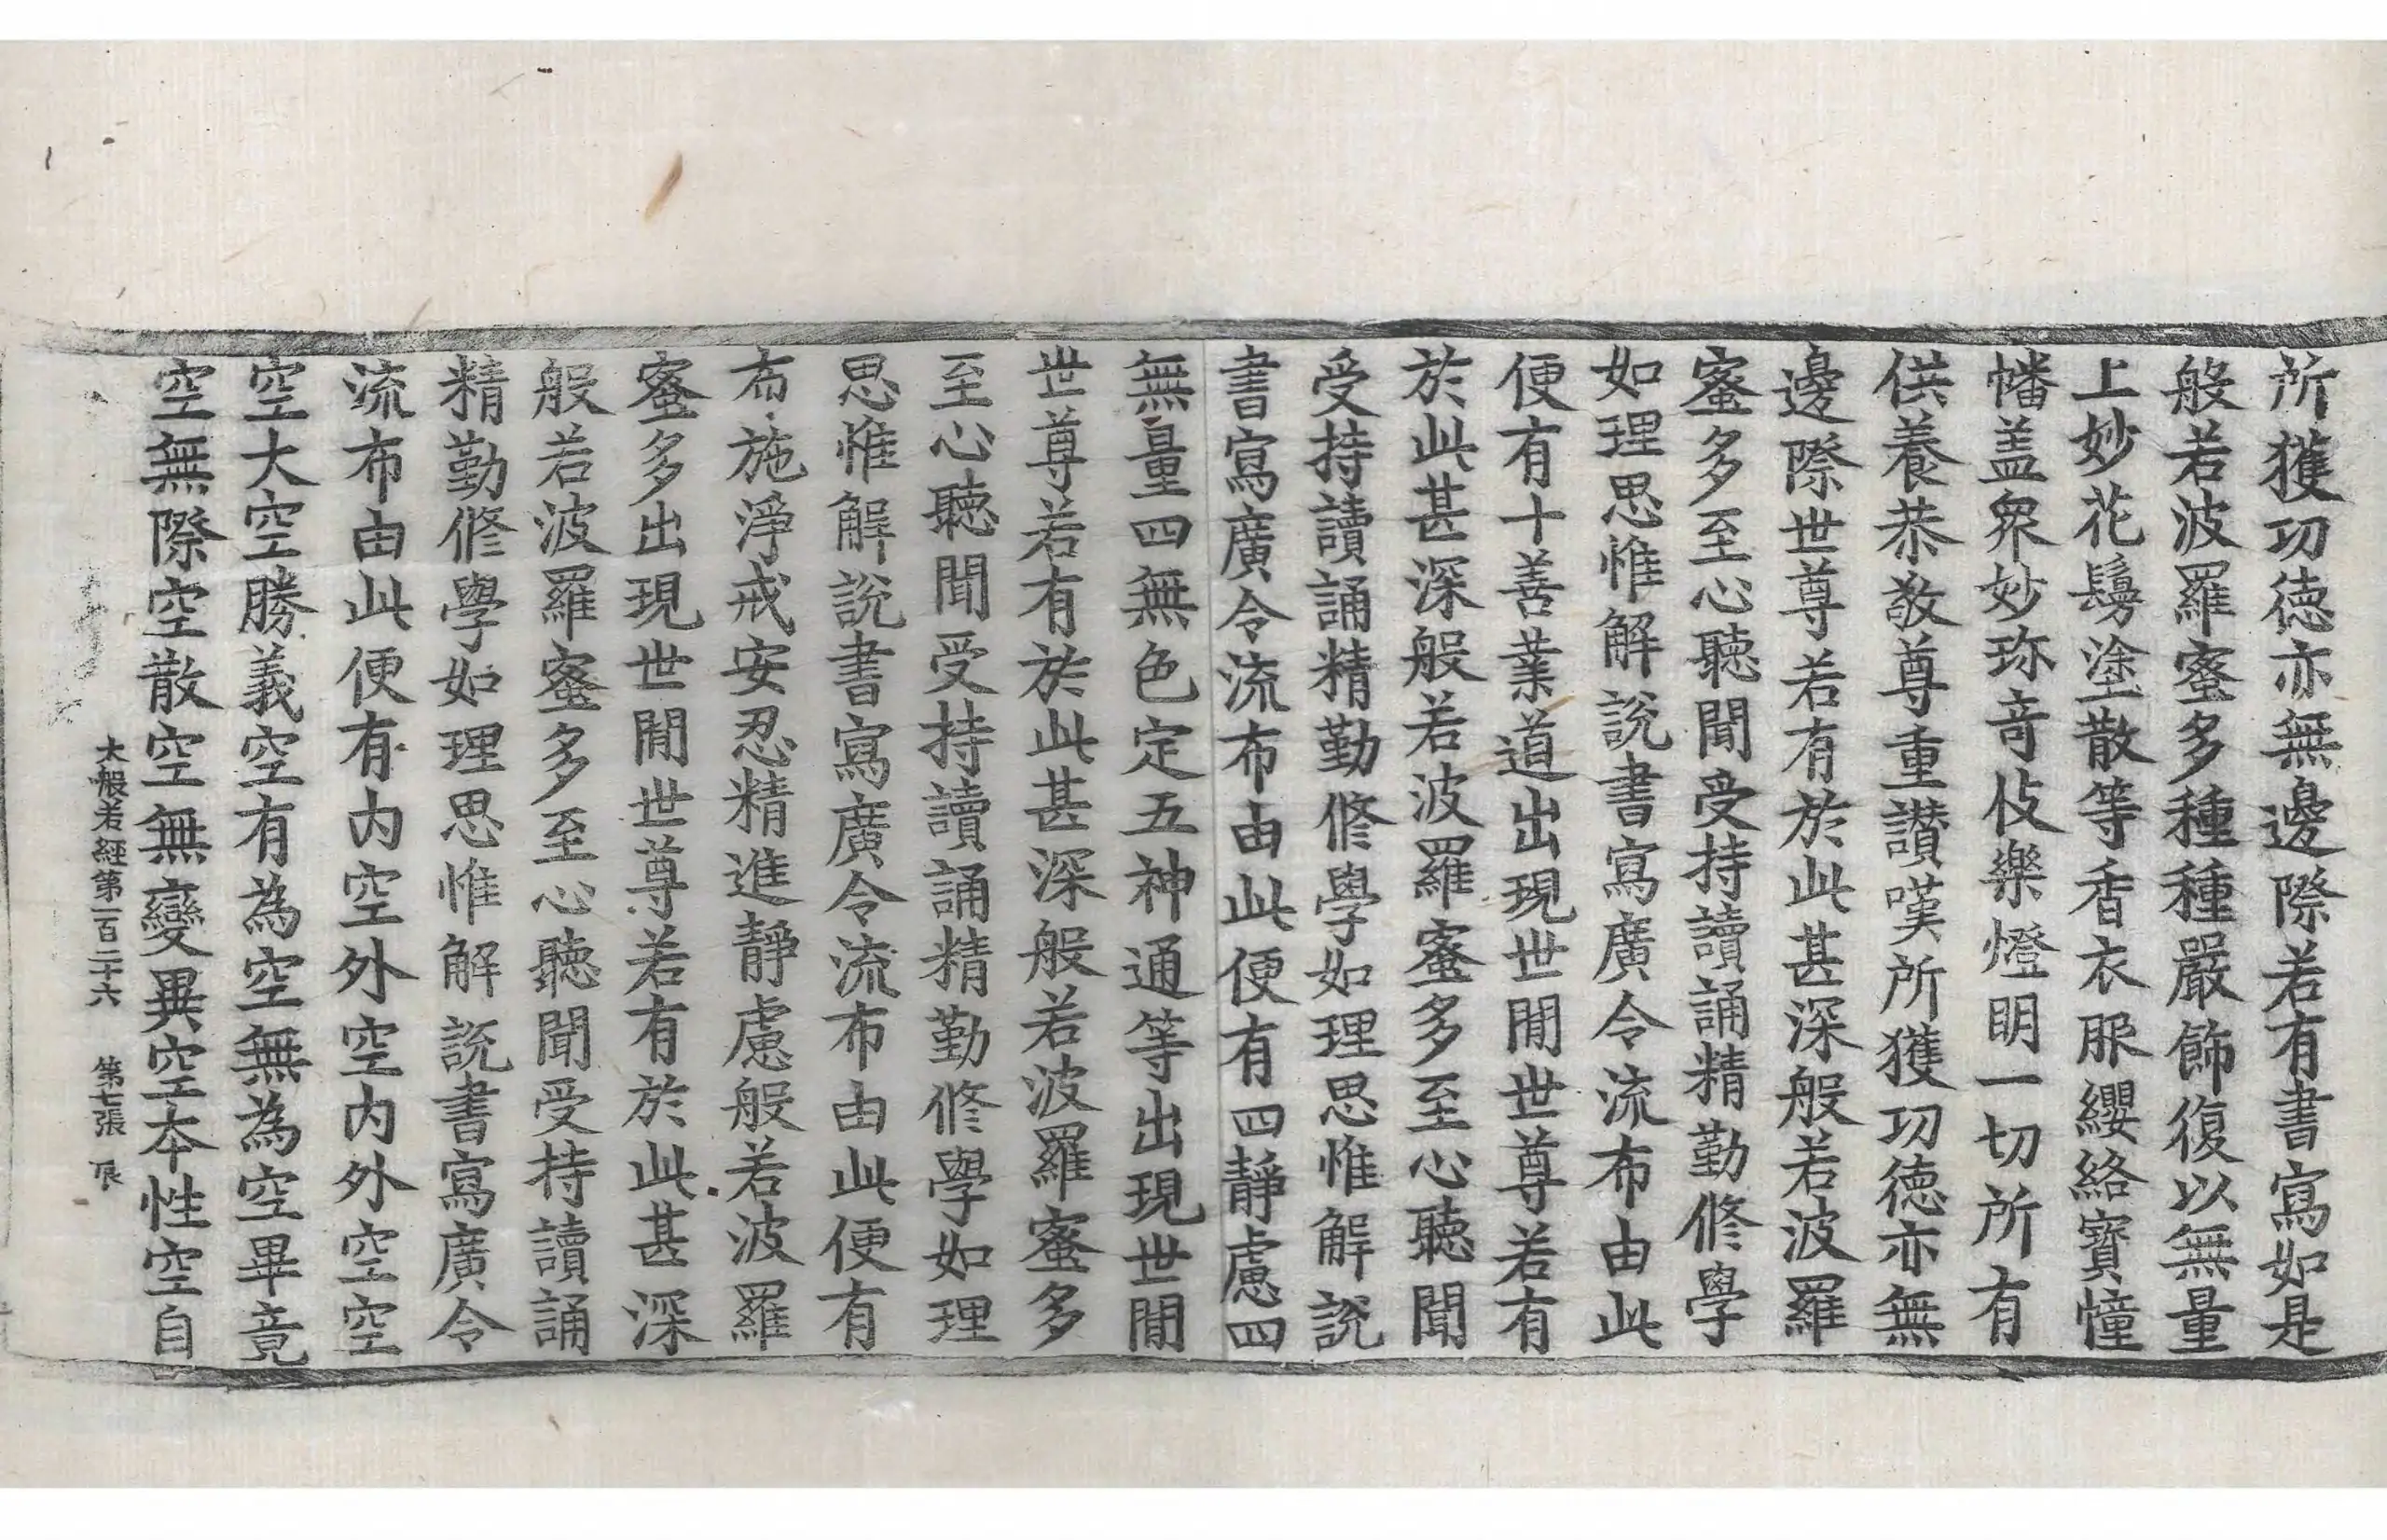 所獲功德亦無邊際若有書寫如是
般若波羅蜜多種種嚴飾復以無量
上妙花鬘塗散等香衣服纓絡寶幢
幡盖衆妙珎竒伎樂燈明一切所有
供養恭敬尊重讃嘆所獲功德亦無
邊際世尊若有於此甚深般若波羅
蜜多至心聽聞受持讀誦精勤修學
如理思惟解說書寫廣令流布由此
便有十善業道出現世閒世尊若有
於此甚深般若波羅蜜多至心聽聞
受持讀誦精勤修學如理思惟解說
書寫廣令流布由此便有四靜慮四
無量四無色定五神通等出現世閒
世尊若有於此甚深般若波羅蜜多
至心聽聞受持讀誦精勤修學如理
思惟解說書寫廣令流布由此便有
布施淨戒安忍精進靜慮般若波羅
蜜多出現世閒世尊若有於此甚深
般若波羅蜜多至心聽聞受持讀誦
精勤修學如理思惟解說書寫廣令
流布由此便有内空外空内外空空
空大空勝義空有為空無為空畢竟
空無際空散空無變異空本性空自
大般若經第一百二十六 第七張